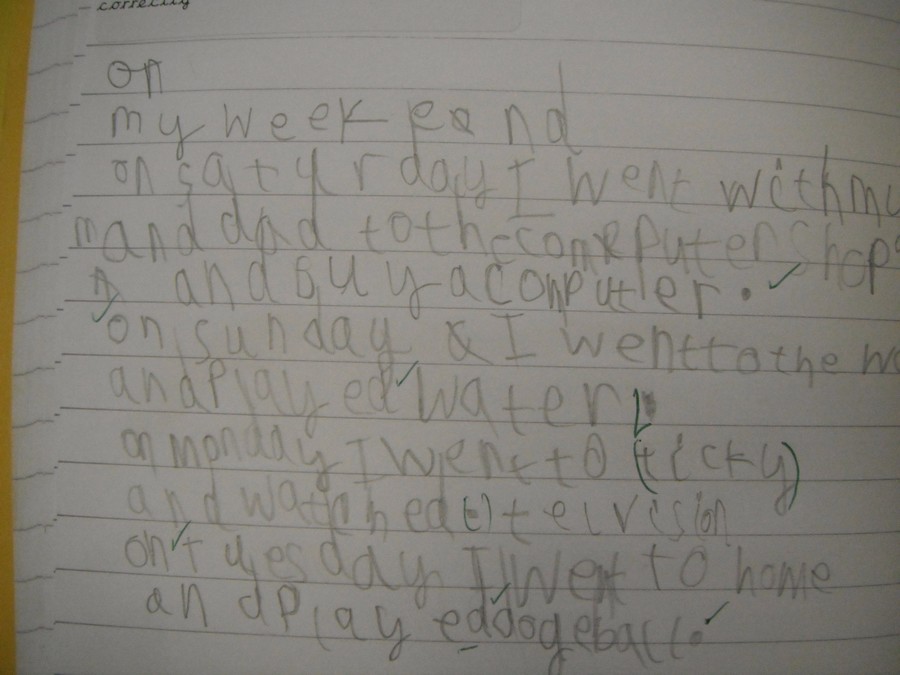 correctly
on
my week end
on satyrday I went with my
m and dad to the computer shop
and buy a computer.
on sunday I went to the
and played water
on monday I went to (ticky)
and watched (t) telvision
on tyesday I went to home
and played dogeball.